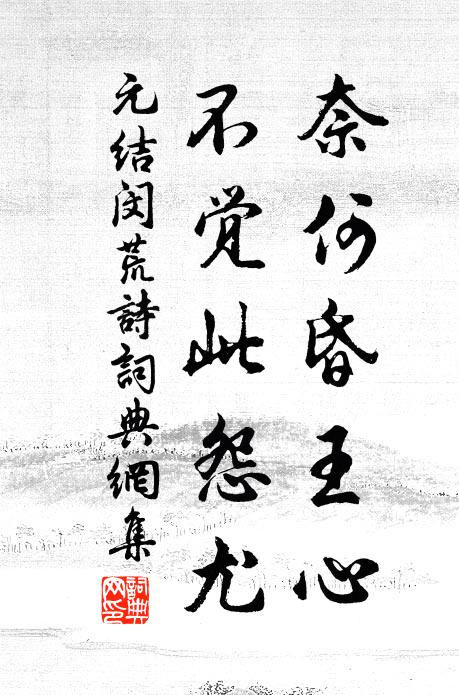 奈何昏王心
不觉此怨尤
元结闵荒詩詞典網集
詞典网印